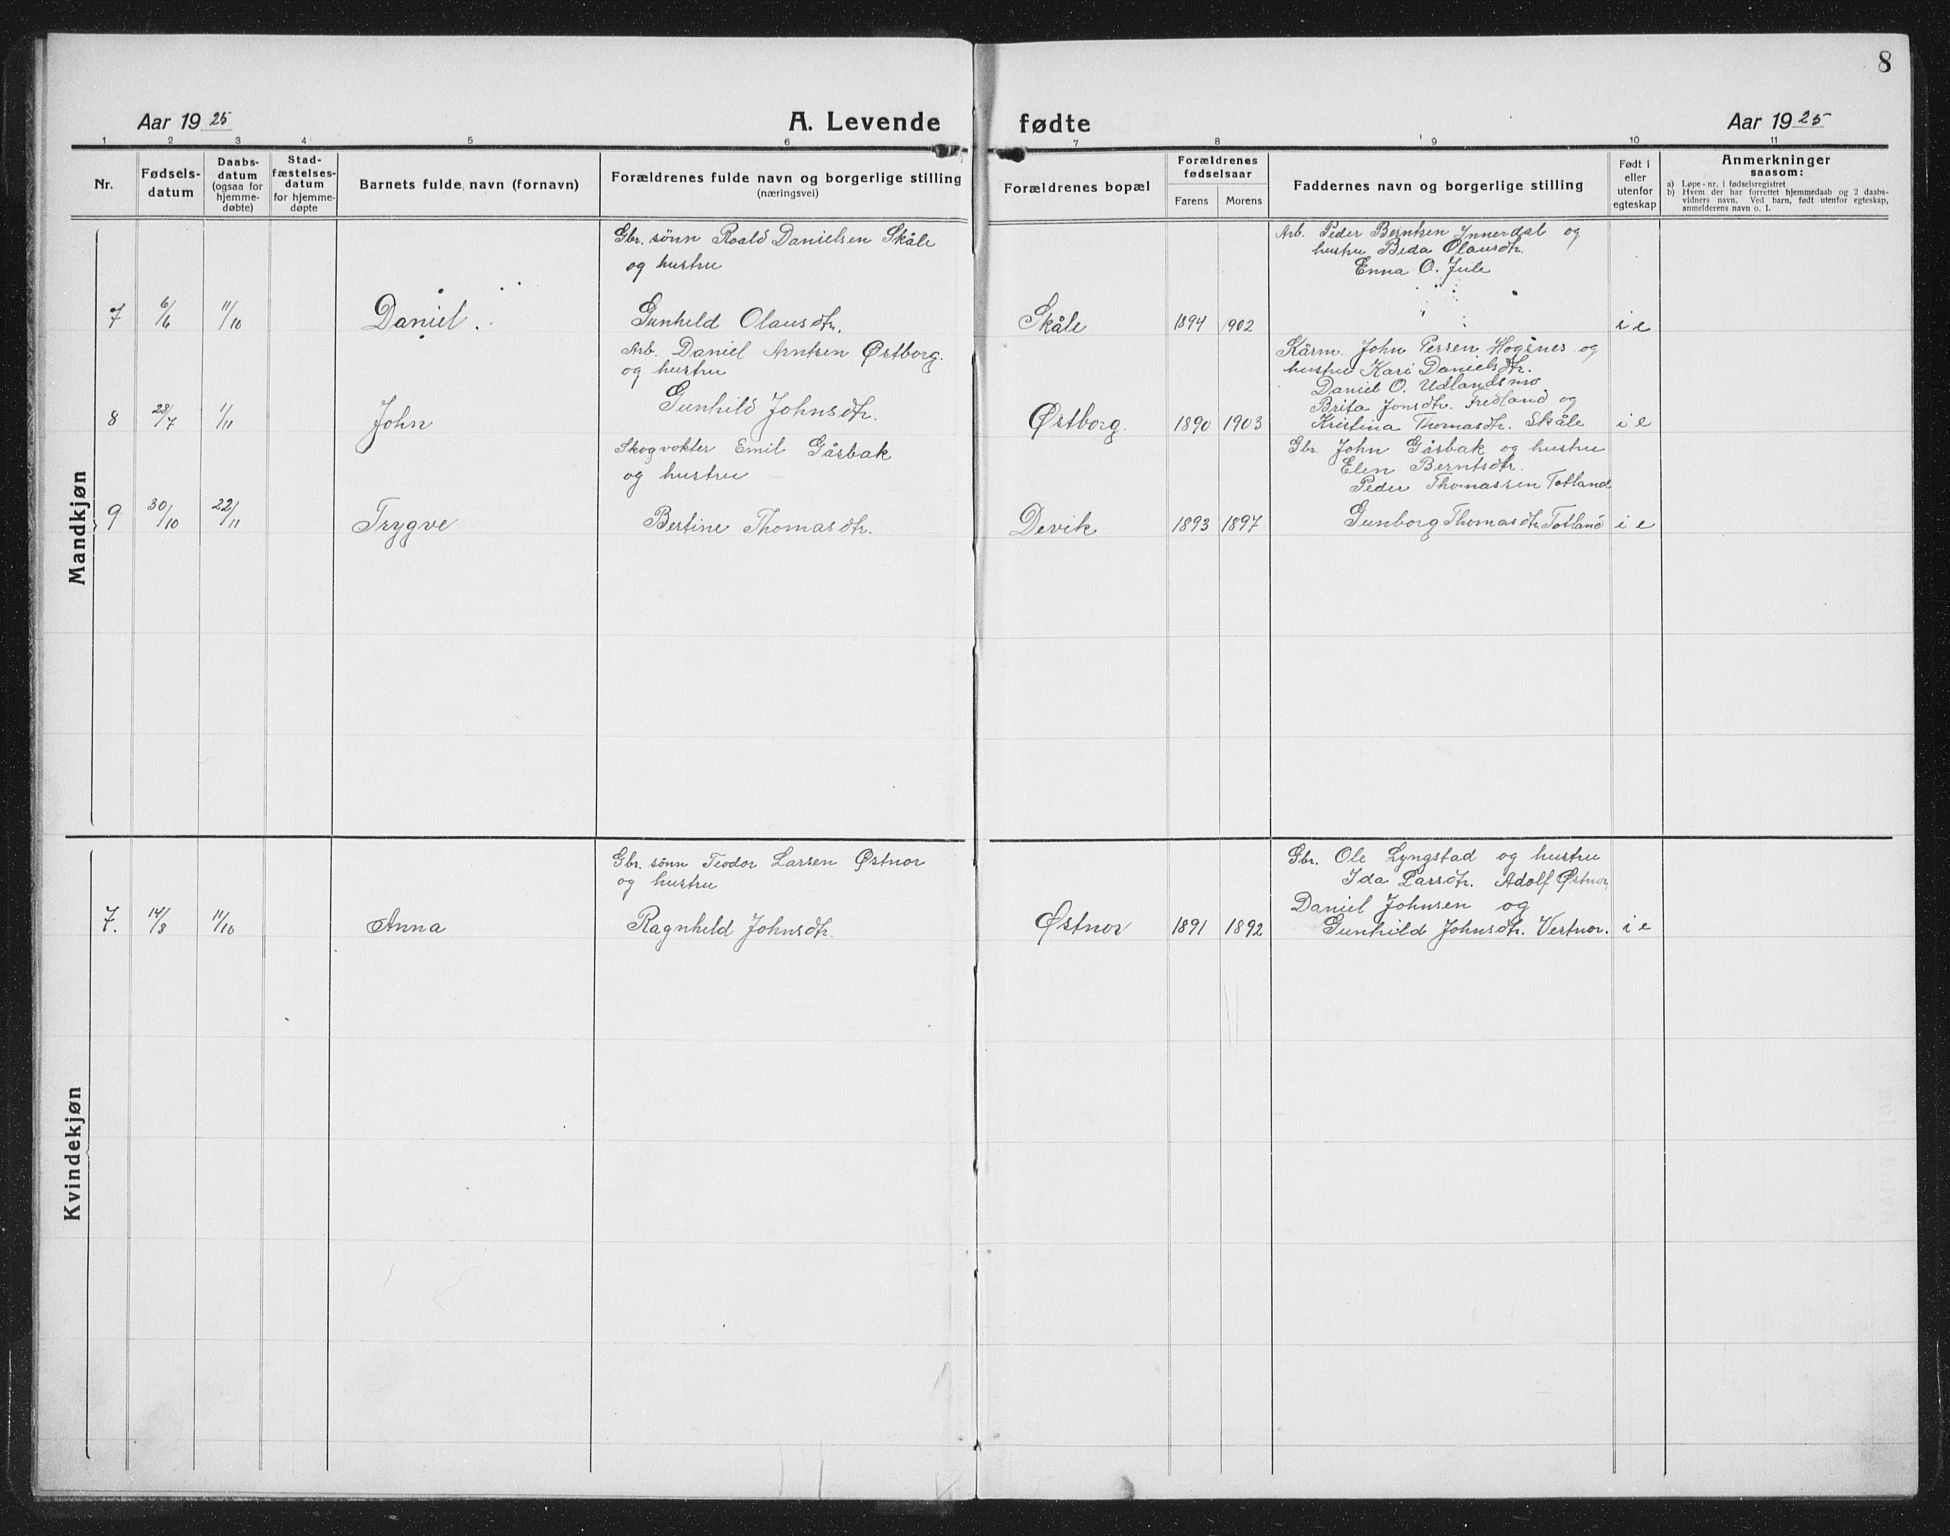 8
Aar 19 25
A. Levende
fødte
Aar 19 25
1 2 3 4 5 6 7 8 9 10 11
Nr.
Fødsels-
datum
Daabs-
datum
(ogsaa for
hjemme-
døbte)
Stad-
fæstelses-
datum
for hjemme-
døpte
Barnets fulde navn (fornavn)
Forældrenes fulde navn og borgerlige stilling
(næringsvei)
Forældrenes bopæl
Forældrenes
fødselsaar
Farens Morens
Faddernes navn og borgerlige stilling
Født i
eller
utenfor
egteskap
Anmerkninger
saasom:
a) Løpe-nr. i fødselsregistret
b) Hvem der har forrettet hjemmedaab og 2 daabs-
vidners navn. Ved barn, født utenfor egteskap,
anmelderens navn o. l.
Mandkjøn
Gbr. sønn Roald Danielsen Skåle
og hustru
7 6/6 11/10 Daniel. Gunhild Olausdtr. Skåle 1894 1902
Arb. Peder Berntsen Innerdal og
hustru Beda Olausdtr.
Enna O. Jule
i e
Arb. Daniel Arntsen Østborg.
og hustru
8 28/7 1/11 John Gunhild Johnsdtr. Østborg. 1890 1903
Kårm. John Persen Hogenes og
hustru Kari Danielsdtr.
Daniel O. Udlandsmo
Brita Jonsdtr. Fredland og
Kristina Thomasdtr. Skåle i e
Skogvokter Emil Gåsbak
og hustru
9 30/10 22/11 Trygve Bertine Thomasdtr. Devik 1893 1897
Gbr. John Gåsbak og hustru
Elen Berntsdtr.
Peder Thomassen Totland
Gunborg Thomasdtr. Totland i e
Kvindekjøn
Gbr. sønn Teodor Larsen Østnor
og hustru
7. 14/8 11/10 Anna Ragnhild Johnsdtr. Østnor 1891 1892
Gbr. Ole Lyngstad og hustru
Ida Larsdtr. Adolf Østnor
Daniel Johnsen og
Gunhild Johnsdtr. Vestnor. i e